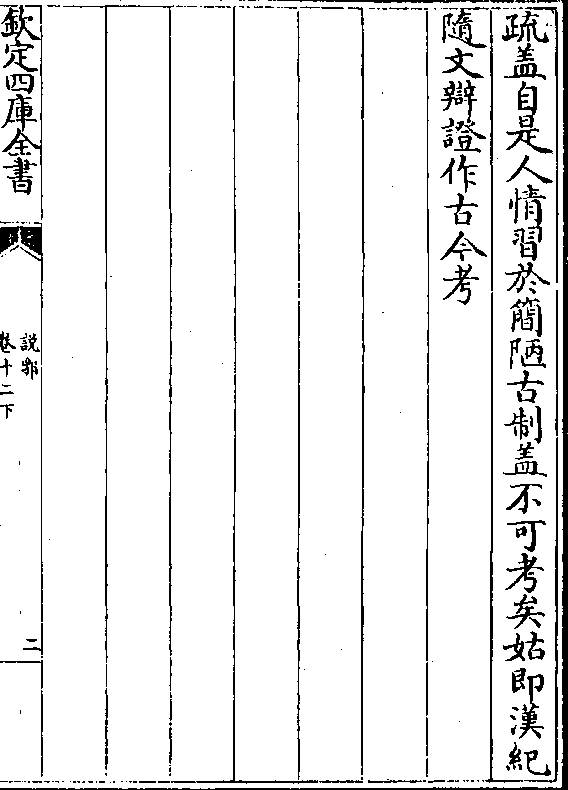 疏盖自是人情習於簡陋古制盖不可考矣姑即漢紀
隨文辯證作古今考
欽定四庫全書
説郛
卷十二下
二